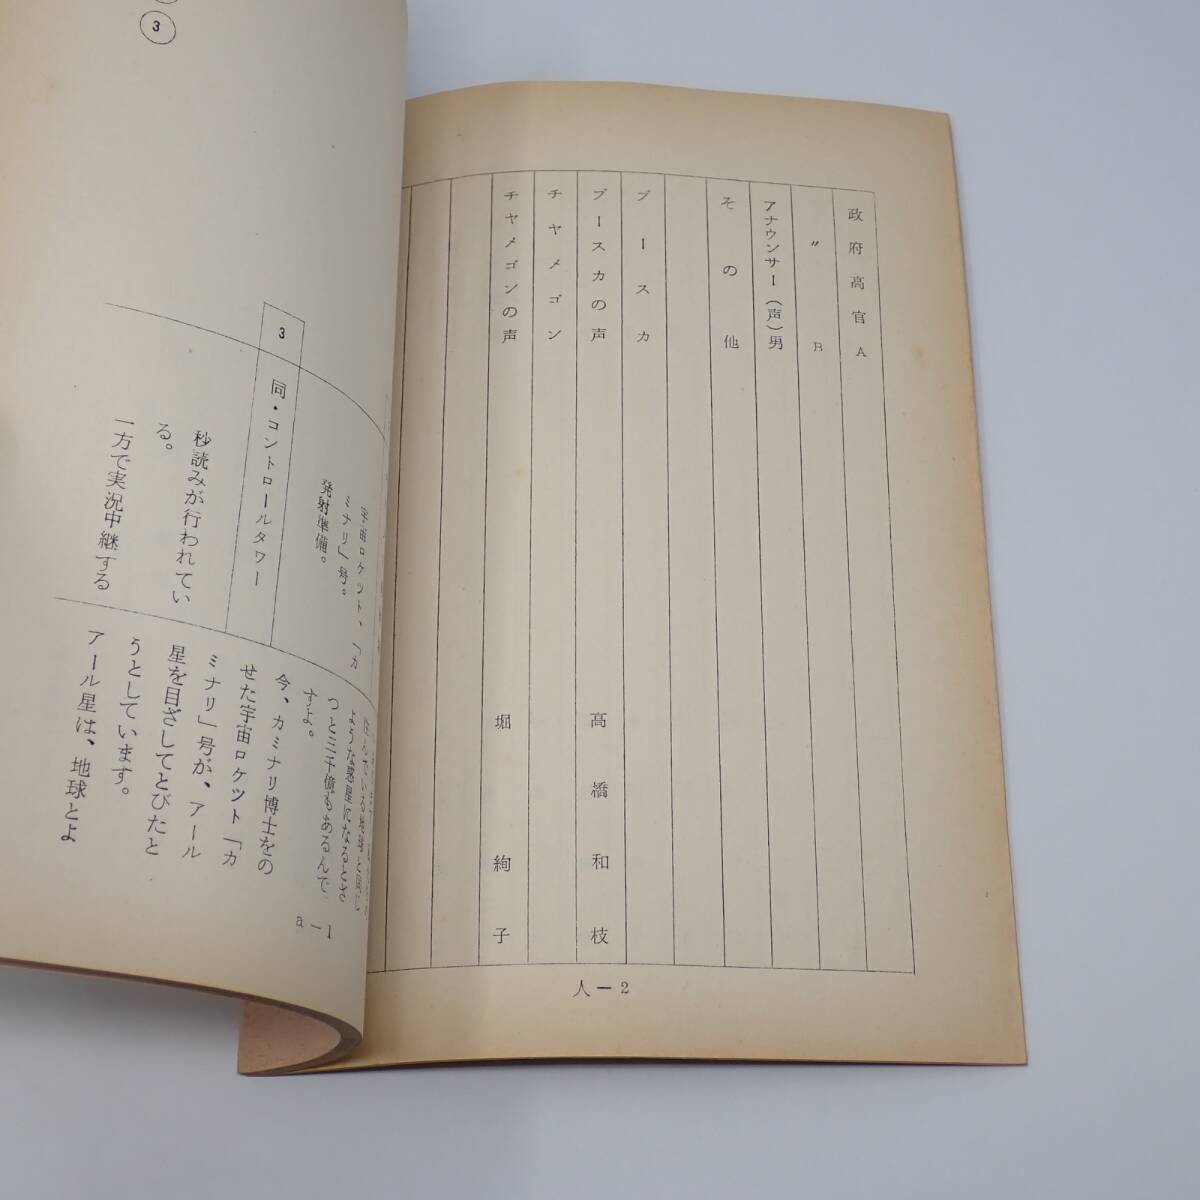 政府高官A
〃 B
アナウンサー(声)男
その他
ブースカ
ブースカの声 高橋和枝
チヤメゴン
チヤメゴンの声 堀絢子
人—2
3
宇宙ロケット、「カ
ミナリ」号。
発射準備。
3 同・コントロールタワー
秒読みが行われてい
る。
一方で実況中継する
住んでいる地球と同じ
ような惑星になるとさ
つと三千億もあるんで
すよ。
今、カミナリ博士をの
せた宇宙ロケツト「カ
ミナリ」号が、アール
星を目ざしてとびたと
うとしています。
アール星は、地球とよ
a—1